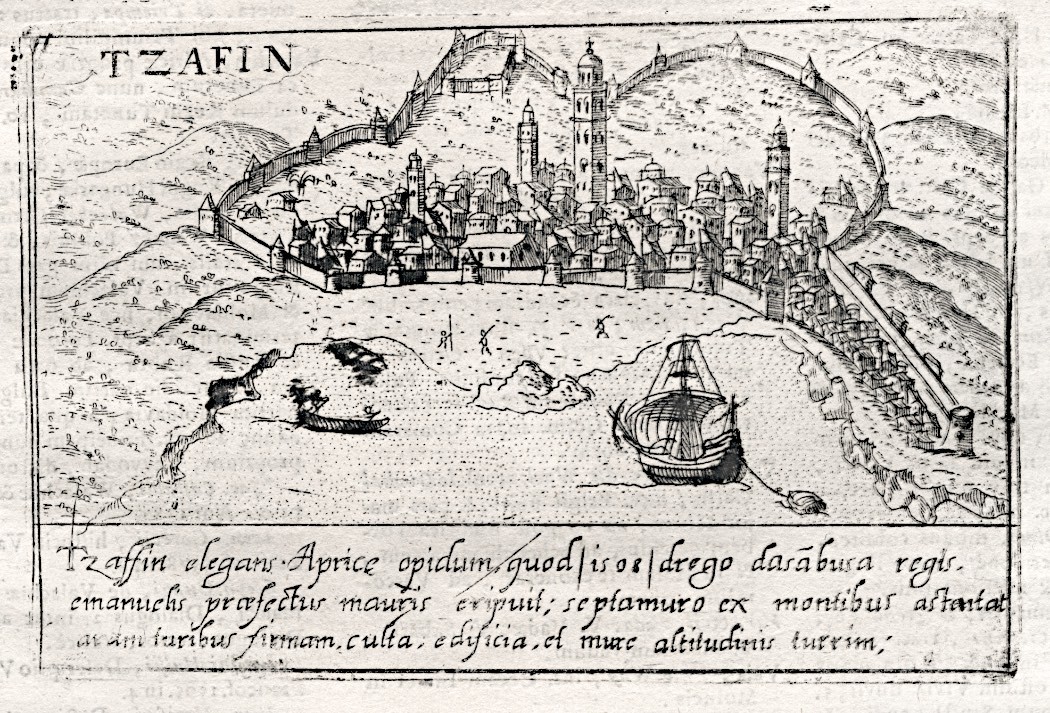 TZAFIN
Tzaffin elegans Apricę opidum, quod|is08|drego dasãbusa regis.
emanuelis præfectus mauris eripuit; septamuro ex montibus
turibus firmam, culta, edificia, et altitudinis turrim;